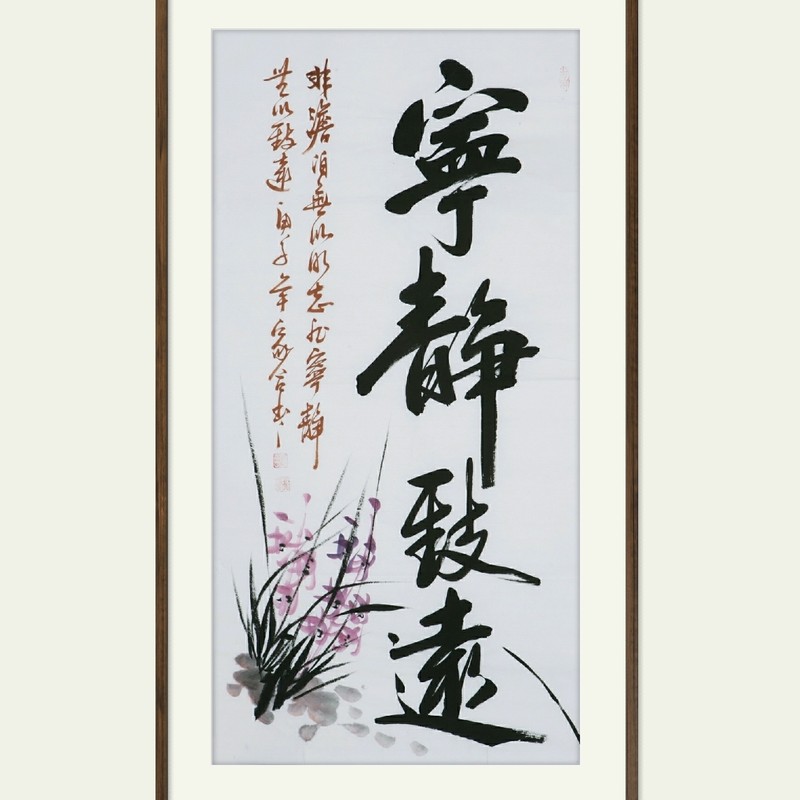 寧靜致遠
非澹泊無以明志非寧靜
無以致遠 庚子年